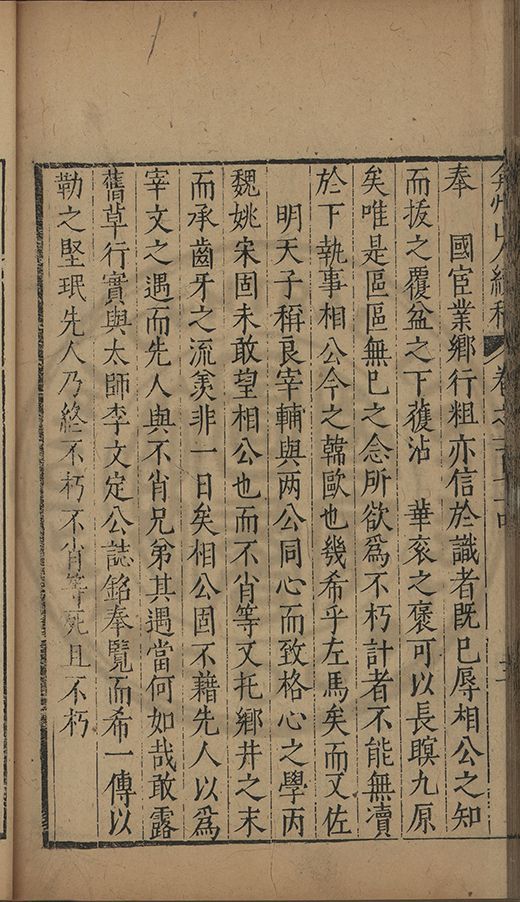 弇州山人續稿 卷之一百七十
奉　國宦業鄉行粗亦信於識者既巳辱相公之知
而拔之覆盆之下獲沾　華衮之褒可以長瞑九原
矣唯是區區無巳之念所欲爲不朽計者不能無瀆
於下執事相公今之韓歐也幾希乎左馬矣而又佐
明天子稱良宰輔與两公同心而致格心之學丙
魏姚宋固未敢望相公也而不肖等又托鄉井之末
而承齒牙之流羙非一日矣相公固不藉先人以爲
宰文之遇而先人與不肖兄弟其遇當何如哉敢露
舊草行實與太師李文定公誌銘奉覽而希一傳以
勒之堅珉先人乃終不朽不肖等死且不朽